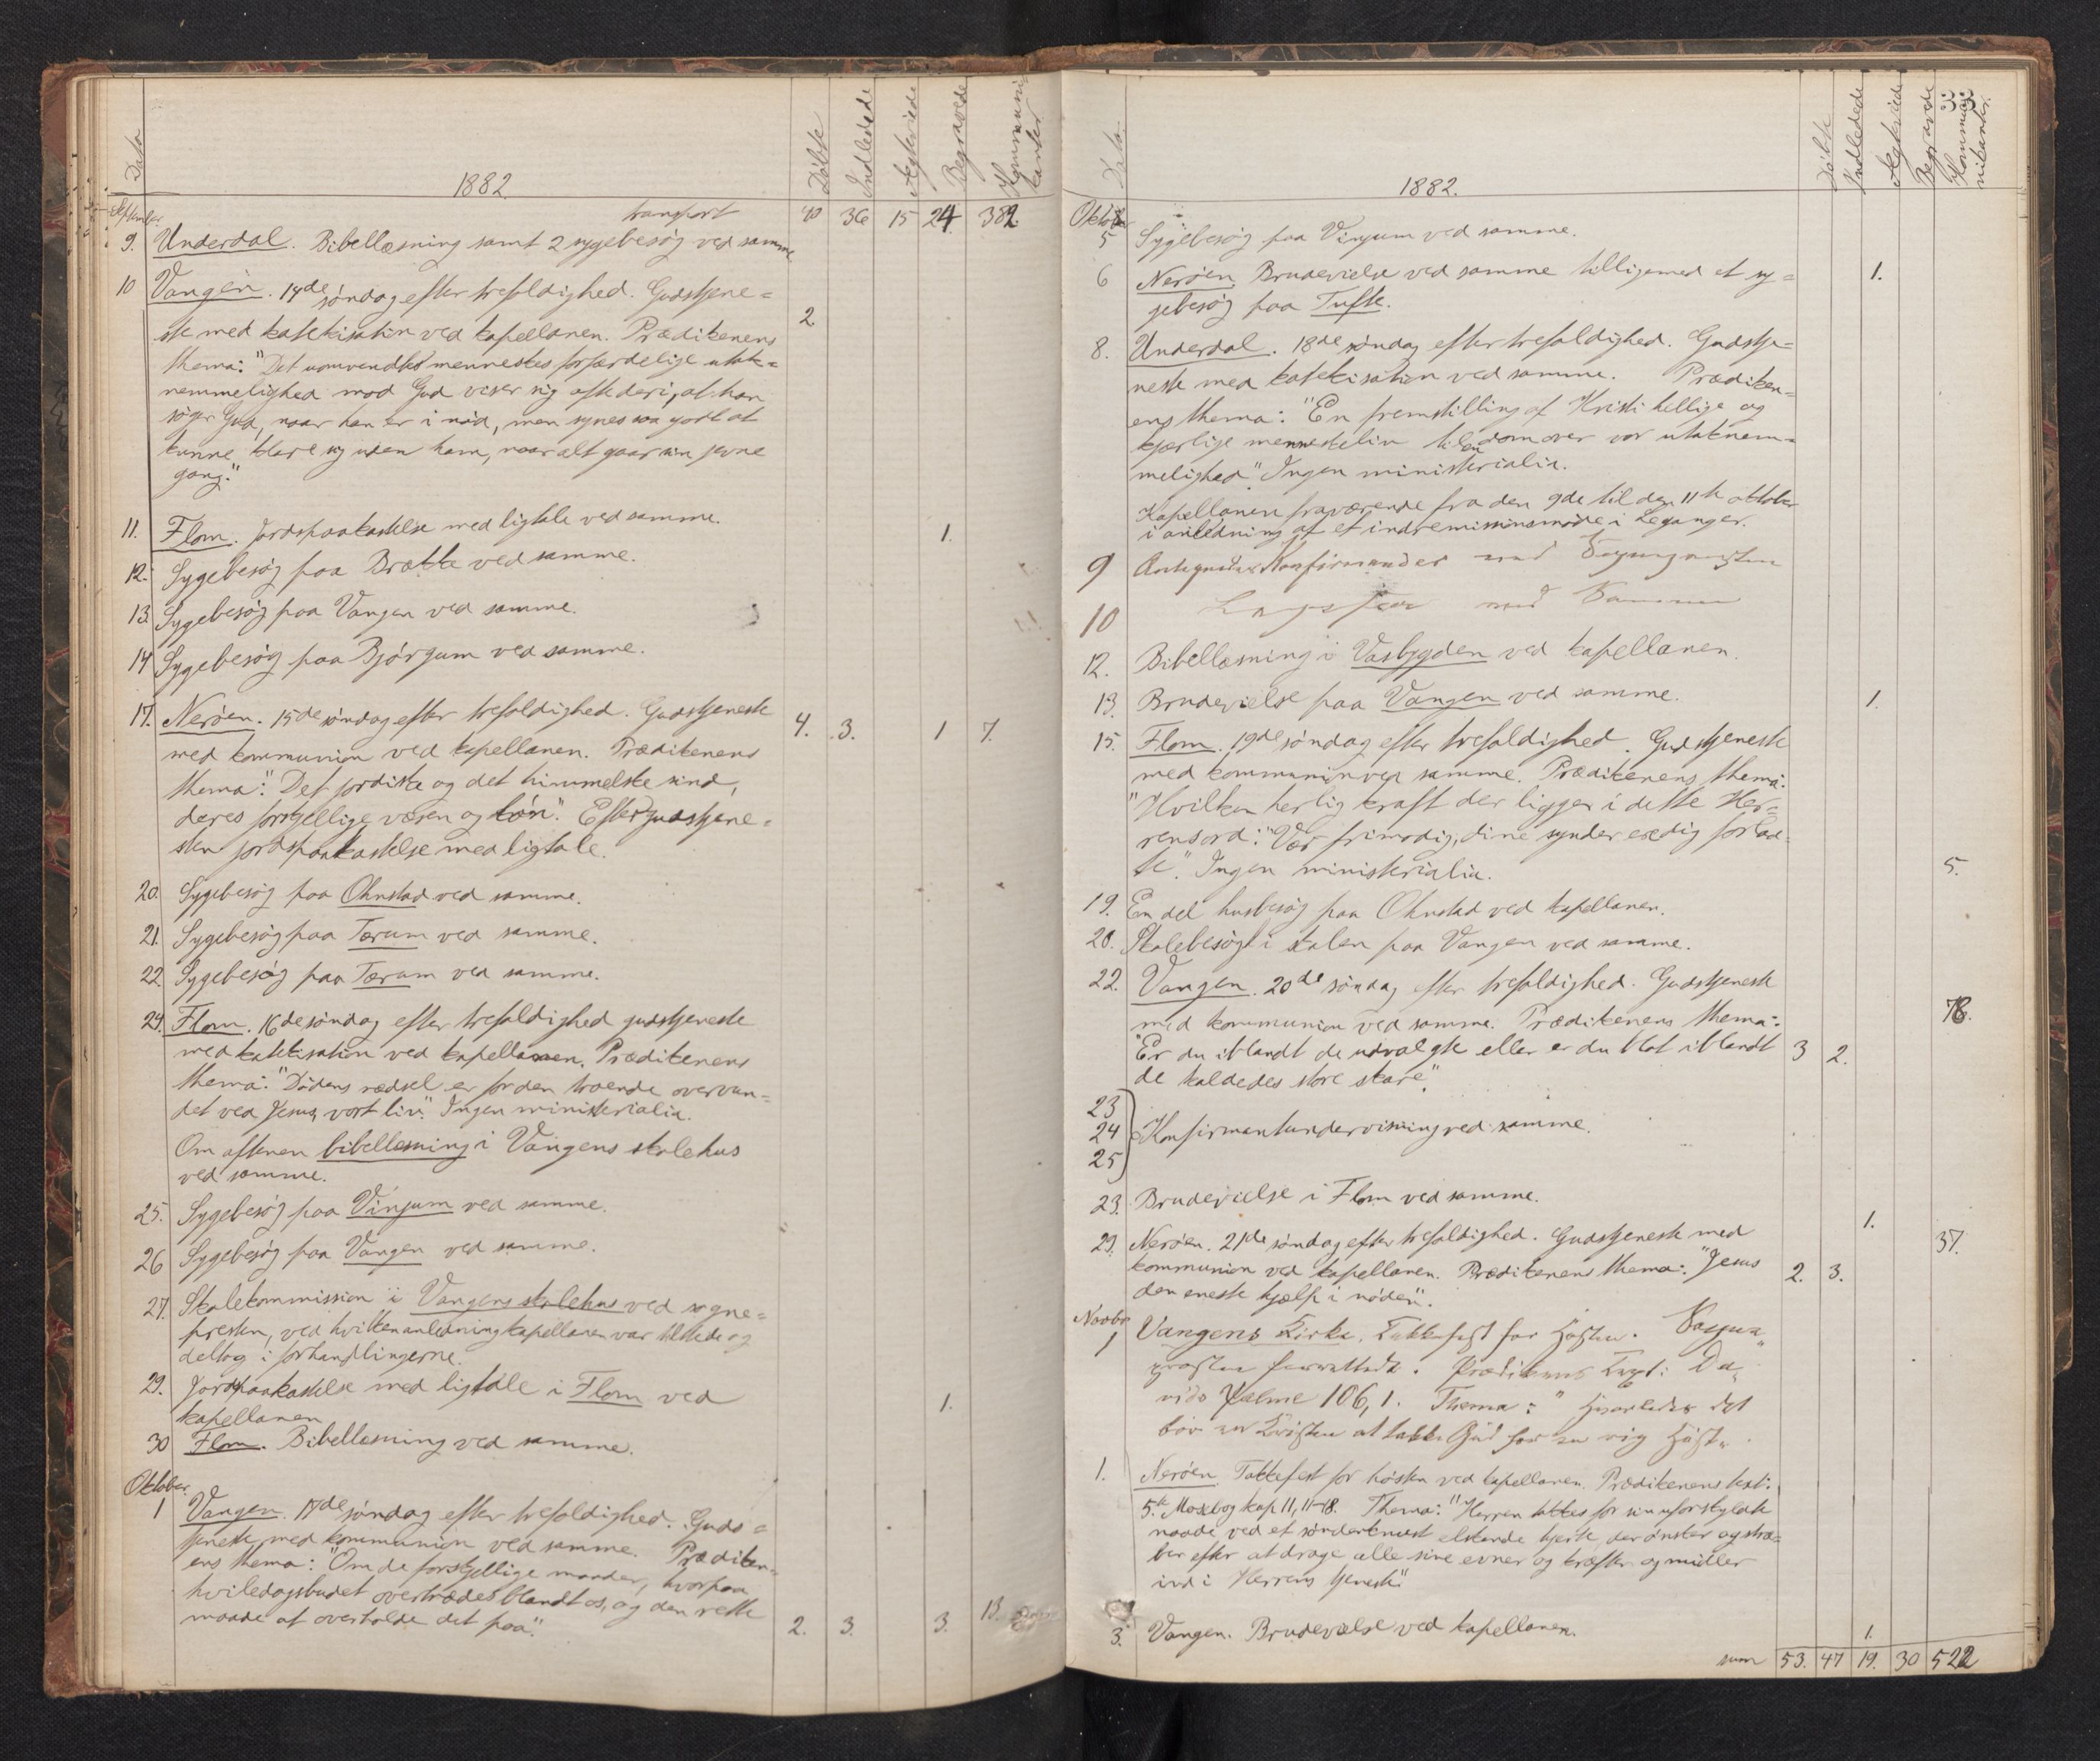 Data
1882.
Döbte
Indledede
Ægteviede
Begravede
Kommuni
kanter
September
transport 40 36 15 24 382.
9. Underdal. Bibellæsning samt 2 sygebesög ved samme
10 Vangen. 14de söndag efter trefoldighed. Gudstjene=
ste med katekisation ved kapellanen. Prædikenens 2.
thema: "Det uomvendte menneskes forfærdelige utak=
nemmelighed mod Gud viser sig ofte deri, at han
söger Gud, naar han er i nöd, men synes saa godt at
kunne klare sig uden ham, naar alt gaar sin jevne
gang."
11. Flom. Jordspaakastelse med ligtale ved samme. 1.
12. Sygebesög paa Brætte ved samme.
13. Sygebesög paa Vangen ved samme.
14 Sygebesög paa Björgum ved samme.
17. Neröen. 15de söndag efter trefoldighed. Gudstjeneste 4. 3. 1 7.
med kommunion ved kapellanen. Prædikenens
thema: "Det jordiske og det himmelske sind,
deres forskjellige væsen og lön." Efter gudstjene=
sten jordspaakastelse med ligtale.
20. Sygebesög paa Ohnstad ved samme.
21. Sygebesög paa Tærum ved samme.
22. Sygebesög paa Tærum ved samme.
24. Flom. 16de söndag efter trefoldighed gudstjeneste
med katekisation ved kapellanen. Prædikenens
thema: "Dödens rædsel er for den troende overvun=
det ved Jesus, vort liv." Ingen ministerialia.
Om aftenen bibellæsning i Vangens skolehus
ved samme.
25. Sygebesög paa Vinjum ved samme.
26 Sygebesög paa Vangen ved samme.
27. Skolekommission i Vangens skolehus ved sogne=
presten, ved hvilken anledning kapellanen var tilstede og
deltog i forhandlingerne.
29. Jordspaakastelse med ligtale i Flom ved 1.
kapellanen
30 Flom. Bibellæsning ved samme.
Oktober.
1 Vangen. 17de söndag efter trefoldighed. Guds=
tjeneste med kommunion ved samme. Prædiken=
ens thema: "Om de forskjellige maader, hvorpaa
hviledagsbudet overtrædes blandt os, og den rette
maade at overholde det paa." 2. 3. 3. 13.
Data.
1882.
Döbte
Indledede
Ægteviede
Begravede
33
Kommu
nikanter.
Oktober
5 Sygebesög paa Vinjum ved samme.
6 Neröen. Brudevielse ved samme tilligemed et sy= 1.
gebesög paa Tufte.
8. Underdal. 18de söndag efter trefoldighed. Gudstje=
neste med katekisation ved samme. Prædiken=
ens thema: "En fremstilling af Kristi hellige og
kjærlige menneskeliv til en dom over vor utaknem=
melighed." Ingen ministerialia.
Kapellanen fraværende fra den 9de til den 11te oktober
i anledning af et indremissionsmöde i Leganger.
9 Konfirmander
10
12. Bibellæsning i Vasbygden ved kapellanen.
13. Brudevielse paa Vangen ved samme. 1.
15. Flom. 19de söndag efter trefoldighed. Gudstjeneste
med kommunion ved samme. Prædikenens thema:
"Hvilken herlig kraft der ligger i dette Her=
rens ord: "Vær frimodig, dine synder ere dig forlad=
te." Ingen ministerialia. 5.
19. En del husbesög paa Ohnstad ved kapellanen.
20. Skolebesög i skolen paa Vangen ved samme.
22. Vangen. 20de söndag efter trefoldighed. Gudstjeneste
med kommunion ved samme. Prædikenens thema: 78.
"Er du iblandt de udvalgte eller er du blot iblandt 3 2.
de kaldedes store skare."
23
24 Konfirmantundervisning ved samme.
25
23. Brudevielse i Flom ved samme. 1.
29. Neröen. 21de söndag efter trefoldighed. Gudstjeneste med 37.
kommunion ved kapellanen. Prædikenens thema: "Jesus 2. 3.
den eneste hjælp i nöden".
Novbr
1 Vangens Kirke. Takkefest for Hösten. Sogne
præsten forrettede. Prædikens Text: Da
vids Psalme 106, 1. Thema: " Hvorledes det
bör en Kristen at takke Gud for en rig Höst".
1. Neröen. Takkefest for hösten ved kapellanen. Prædikenens text:
5te Mosebog kap 11, 11-18. Thema: "Herren takkes for sin uforskyldte
naade ved et sönderknust elskende hjerte, der önsker og stræ=
ber efter at drage alle sine evner og kræfter og midler
ind i Herrens tjeneste."
3. Vangen. Brudevielse ved kapellanen. 1.
sum 53. 47 19. 30 522